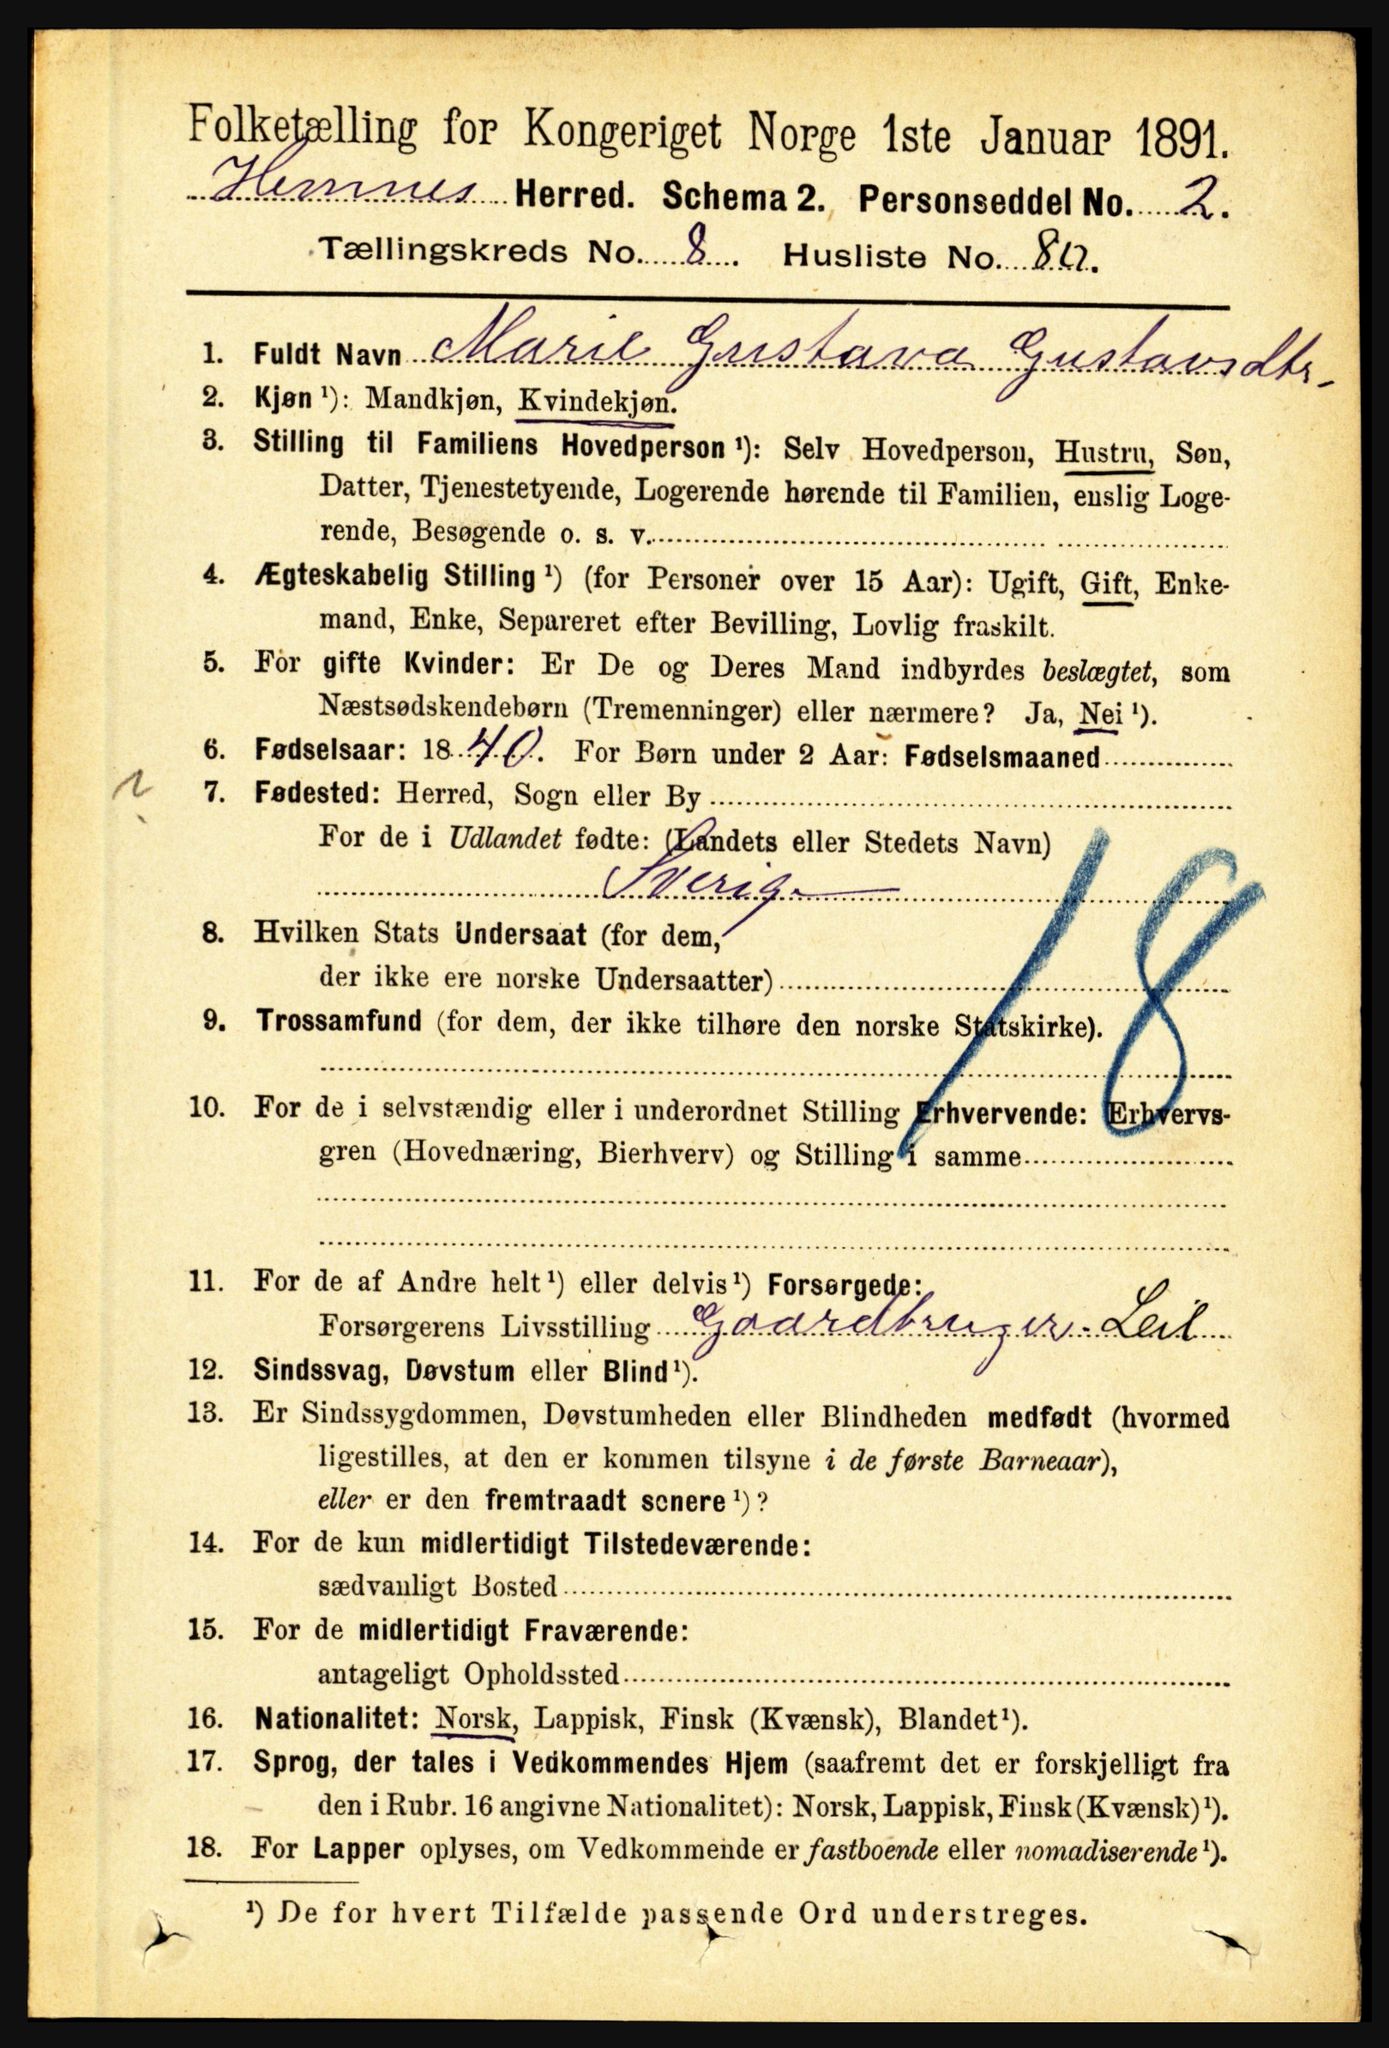 Folketælling for Kongeriget Norge 1ste Januar 1891.
Hemnes Herred. Schema 2. Personseddel No. 2.
Tællingskreds No. 8. Husliste No. 80.
1. Fuldt Navn Marie Gustava Gustavsdtr
2. Kjøn ¹): Mandkjøn, Kvindekjøn.
3. Stilling til Familiens Hovedperson ¹): Selv Hovedperson, Hustru, Søn,
Datter, Tjenestetyende, Logerende hørende til Familien, enslig Loge-
rende, Besøgende o. s. v.
4. Ægteskabelig Stilling ¹) (for Personer over 15 Aar): Ugift, Gift, Enke-
mand, Enke, Separeret efter Bevilling, Lovlig fraskilt.
5. For gifte Kvinder: Er De og Deres Mand indbyrdes beslægtet, som
Næstsødskendebørn (Tremenninger) eller nærmere? Ja, Nei ¹).
6. Fødselsaar: 1840. For Børn under 2 Aar: Fødselsmaaned
7. Fødested: Herred, Sogn eller By
For de i Udlandet fødte: (Landets eller Stedets Navn)
Sverig
18
8. Hvilken Stats Undersaat (for dem,
der ikke ere norske Undersaatter)
9. Trossamfund (for dem, der ikke tilhøre den norske Statskirke).
10. For de i selvstændig eller i underordnet Stilling Erhvervende: Erhvervs-
gren (Hovednæring, Bierhverv) og Stilling i samme
11. For de af Andre helt ¹) eller delvis ¹) Forsørgede:
Forsørgerens Livsstilling Gaardbruger Leil
12. Sindssvag, Døvstum eller Blind ¹).
13. Er Sindssygdommen, Døvstumheden eller Blindheden medfødt (hvormed
ligestilles, at den er kommen tilsyne i de første Barneaar),
eller er den fremtraadt senere ¹)?
14. For de kun midlertidigt Tilstedeværende:
sædvanligt Bosted
15. For de midlertidigt Fraværende:
antageligt Opholdssted
16. Nationalitet: Norsk, Lappisk, Finsk (Kvænsk), Blandet ¹).
17. Sprog, der tales i Vedkommendes Hjem (saafremt det er forskjelligt fra
den i Rubr. 16 angivne Nationalitet): Norsk, Lappisk, Finsk (Kvænsk) ¹).
18. For Lapper oplyses, om Vedkommende er fastboende eller nomadiserende ¹).
¹) De for hvert Tilfælde passende Ord understreges.